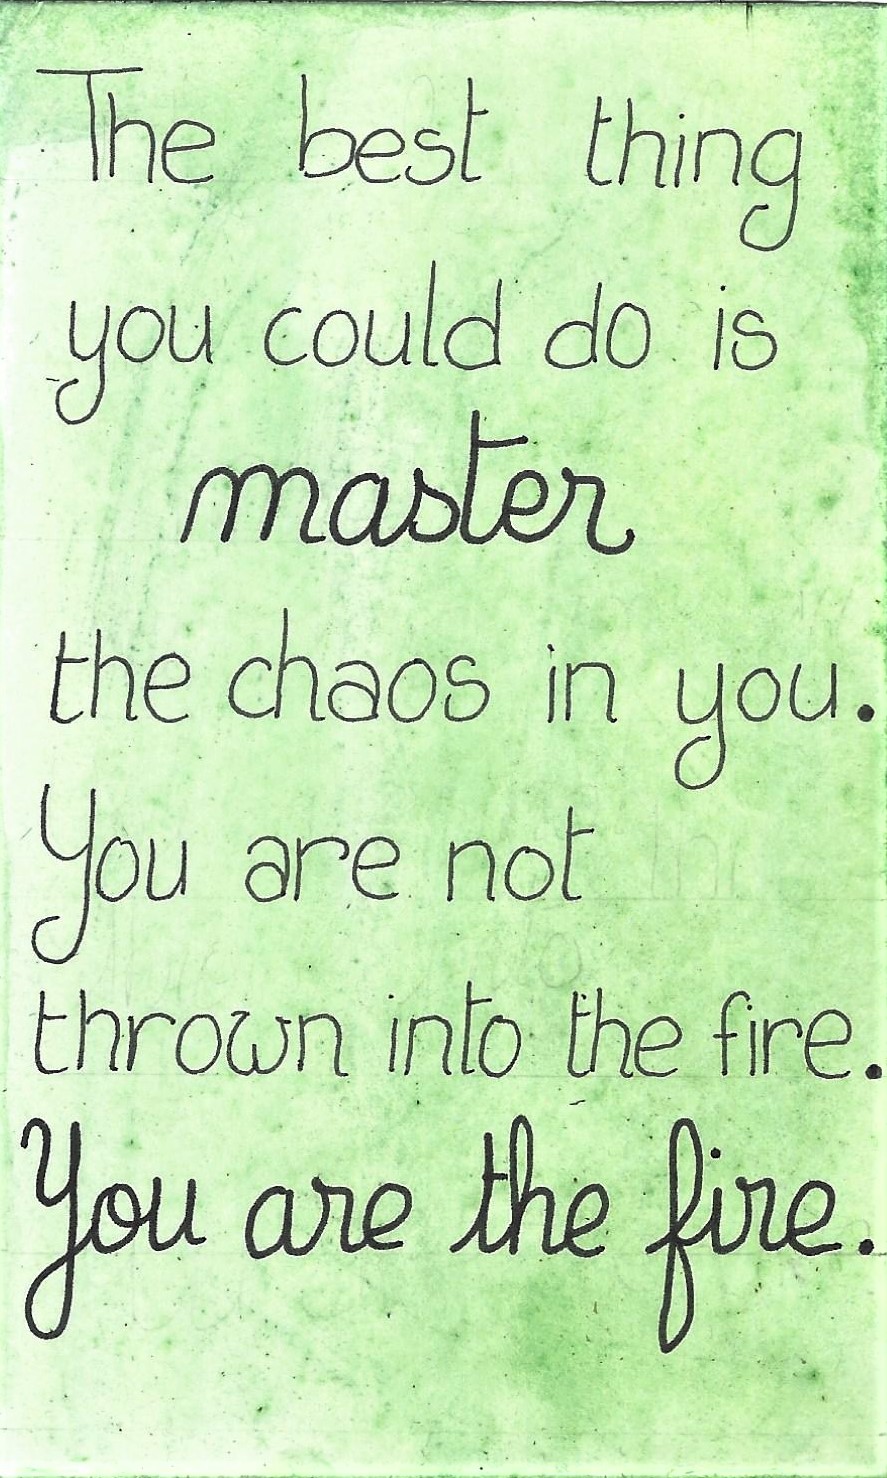 The best thing
you could do is
master
the chaos in you.
You are not
thrown into the fire.
You are the fire.